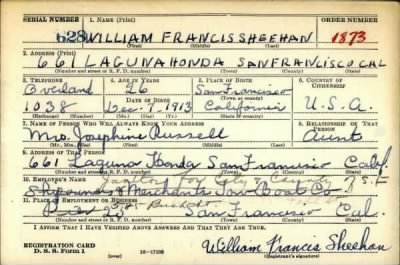 SERIAL NUMBER 1. NAME (Print) ORDER NUMBER
628 WILLIAM FRANCIS SHEEHAN 1873
(First) (Middle) (Last)
2. ADDRESS (Print)
661 LAGUNA HONDA SAN FRANCISCO CAL
(Number and street or R. F. D. number) (Town) (County) (State)
3. TELEPHONE 4. AGE IN YEARS 5. PLACE OF BIRTH 6. COUNTRY OF CITIZENSHIP
Overland 26 San Francisco
DATE OF BIRTH (Town or county)
1038 Dec. 7, 1913 California U.S.A.
(Exchange) (Number) (Mo.) (Day) (Yr.) (State or country)
7. NAME OF PERSON WHO WILL ALWAYS KNOW YOUR ADDRESS 8. RELATIONSHIP OF THAT PERSON
Mrs. Josephine Russell Aunt
(Mr., Mrs., Miss) (First) (Middle) (Last)
9. ADDRESS OF THAT PERSON
661 Laguna Honda San Francisco Calif.
(Number and street or R. F. D. number) (Town) (County) (State)
10. EMPLOYER'S NAME
City & County S.F.
Merchants Co
11. PLACE OF EMPLOYMENT OR BUSINESS
San Francisco Cal.
(Number and street or R. F. D. number) (Town) (County) (State)
I AFFIRM THAT I HAVE VERIFIED ABOVE ANSWERS AND THAT THEY ARE TRUE.
REGISTRATION CARD
D. S. S. Form 1 16-17105 William Francis Sheehan
(Registrant's signature)